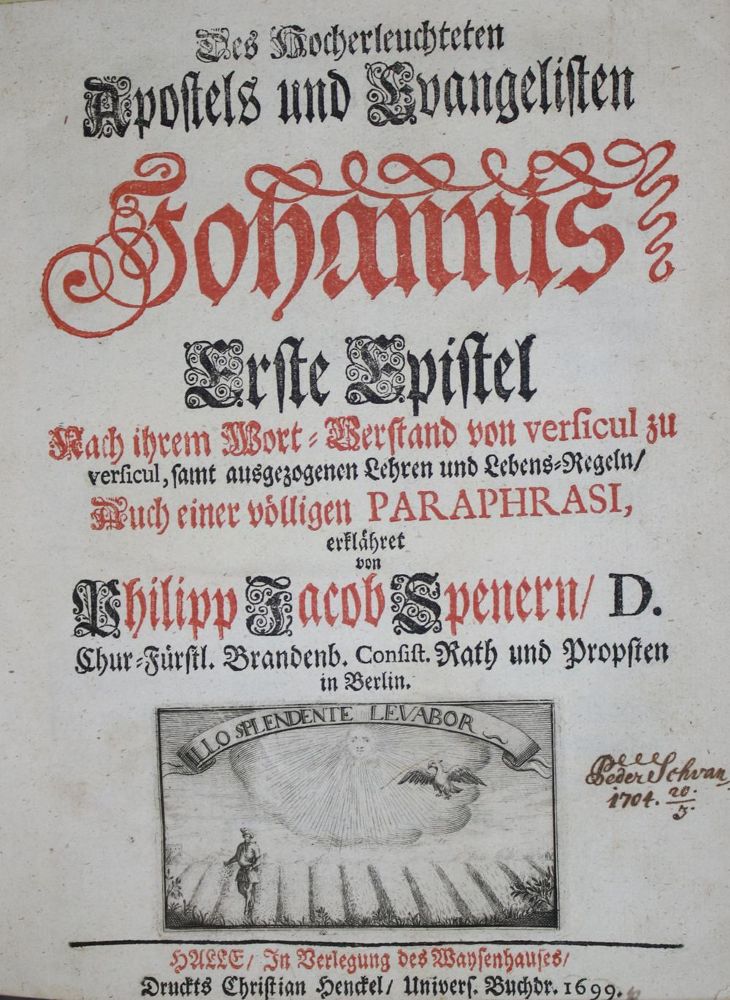 Des Hocherleuchteten
Apostels und Evangelisten
Johannis
Erste Epistel
Nach ihrem Wort-Verstand von versicul zu
versicul, samt ausgezogenen Lehren und Lebens-Regeln/
Auch einer völligen PARAPHRASI,
erklähret
von
Philipp Jacob Spenern/ D.
Chur-Fürstl. Brandenb. Consist. Rath und Propsten
in Berlin.
ILLO SPLENDENTE LEVABOR
Peder Schvan
1704. 20/5.
HALLE/ In Verlegung des Waysenhauses/
Druckts Christian Henckel/ Univers. Buchdr. 1699.